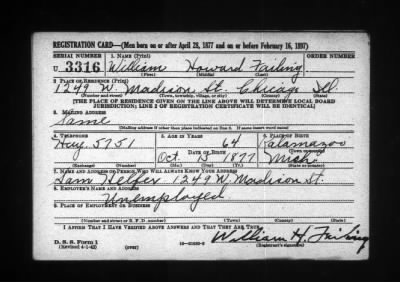 REGISTRATION CARD—(Men born on or after April 28, 1877 and on or before February 16, 1897)
SERIAL NUMBER 1. NAME (Print) ORDER NUMBER
U 3316 William Howard Failing
(First) (Middle) (Last)
2. PLACE OF RESIDENCE (Print)
1249 W. Madison St. Chicago Ill.
(Number and street) (Town, township, village, or city) (County) (State)
[THE PLACE OF RESIDENCE GIVEN ON THE LINE ABOVE WILL DETERMINE LOCAL BOARD
JURISDICTION; LINE 2 OF REGISTRATION CERTIFICATE WILL BE IDENTICAL]
3. MAILING ADDRESS
Same
[Mailing address if other than place indicated on line 2. If same insert word same]
4. TELEPHONE 5. AGE IN YEARS 6. PLACE OF BIRTH
Hay. 5751 64 Kalamazoo
DATE OF BIRTH (Town or county)
Oct. 15 1877 Mich.
(Exchange) (Number) (Mo.) (Day) (Yr.) (State or country)
7. NAME AND ADDRESS OF PERSON WHO WILL ALWAYS KNOW YOUR ADDRESS
Sam 1249 W. Madison St.
8. EMPLOYER'S NAME AND ADDRESS
Unemployed
9. PLACE OF EMPLOYMENT OR BUSINESS
(Number and street or R. F. D. number) (Town) (County) (State)
I AFFIRM THAT I HAVE VERIFIED ABOVE ANSWERS AND THAT THEY ARE TRUE.
D. S. S. Form 1
(Revised 4-1-42) (over) William H. Failing
(Registrant's signature)